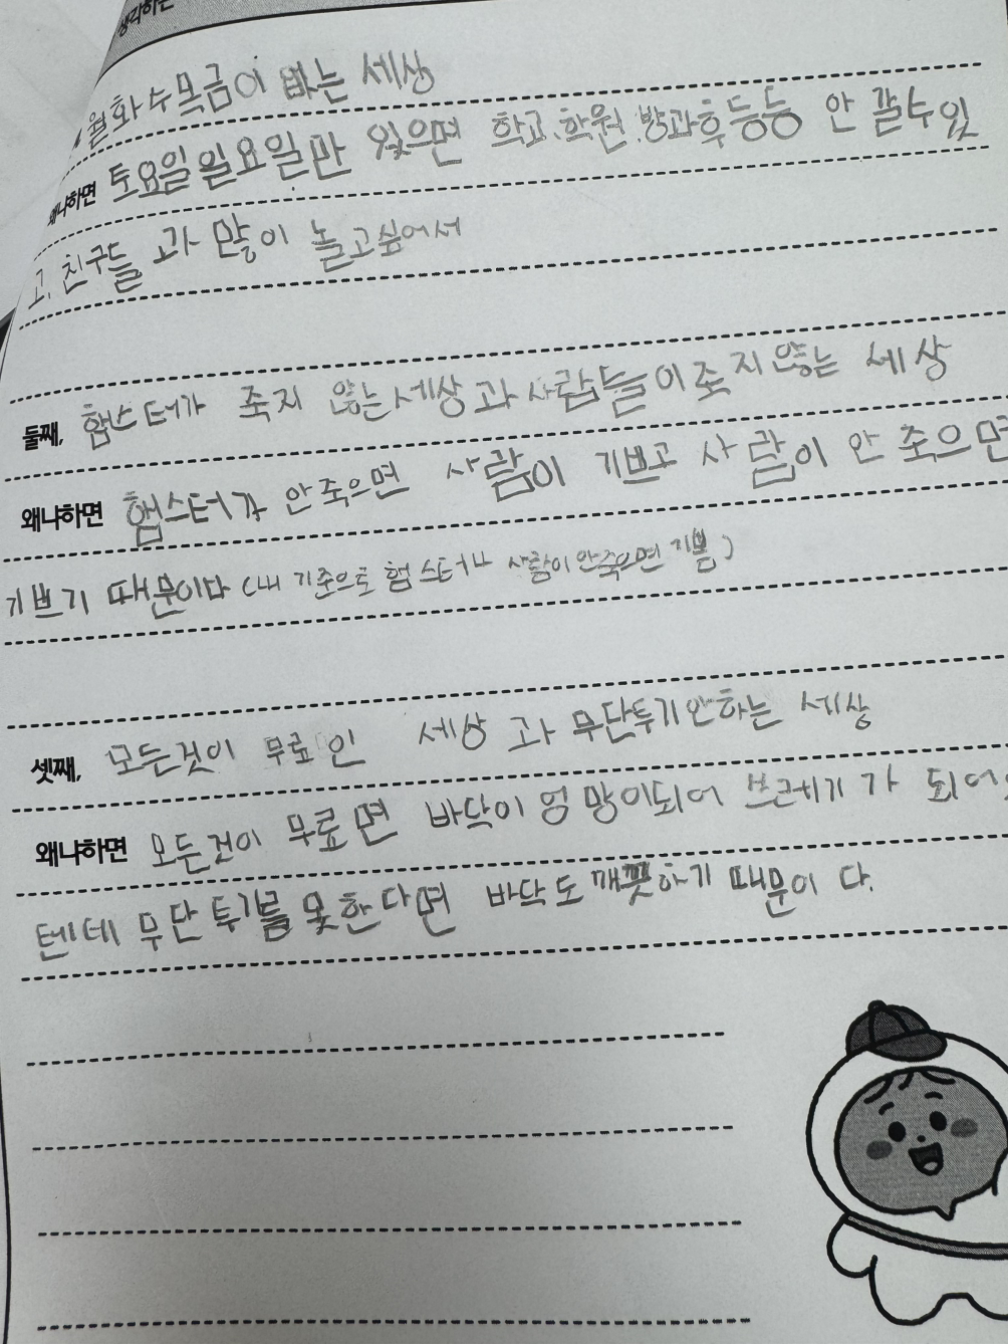 생각하는
월화수목금이 빠는 세상
왜냐하면 토요일일요일만 있으면 학교.학원.방과후등등 안 갈수있
고. 친구들 과 많이 놀고싶어서
둘째, 햄스터가 죽지 않는세상과 사람들이죽지않는 세상
왜냐하면 햄스터가 안죽으면 사람이 기쁘고 사람이 안 죽으면
기쁘기 때문이다 (내 기준으로 햄스터나 사람이 안죽으면 기쁨)
셋째, 모든것이 무료인 세상 과 무단투기안하는 세상
왜냐하면 모든것이 무료면 바닥이 엉망이되어 쓰레기가 되어
텐데 무단투기를 못한다면 바닥도 깨끗하기 때문이 다.